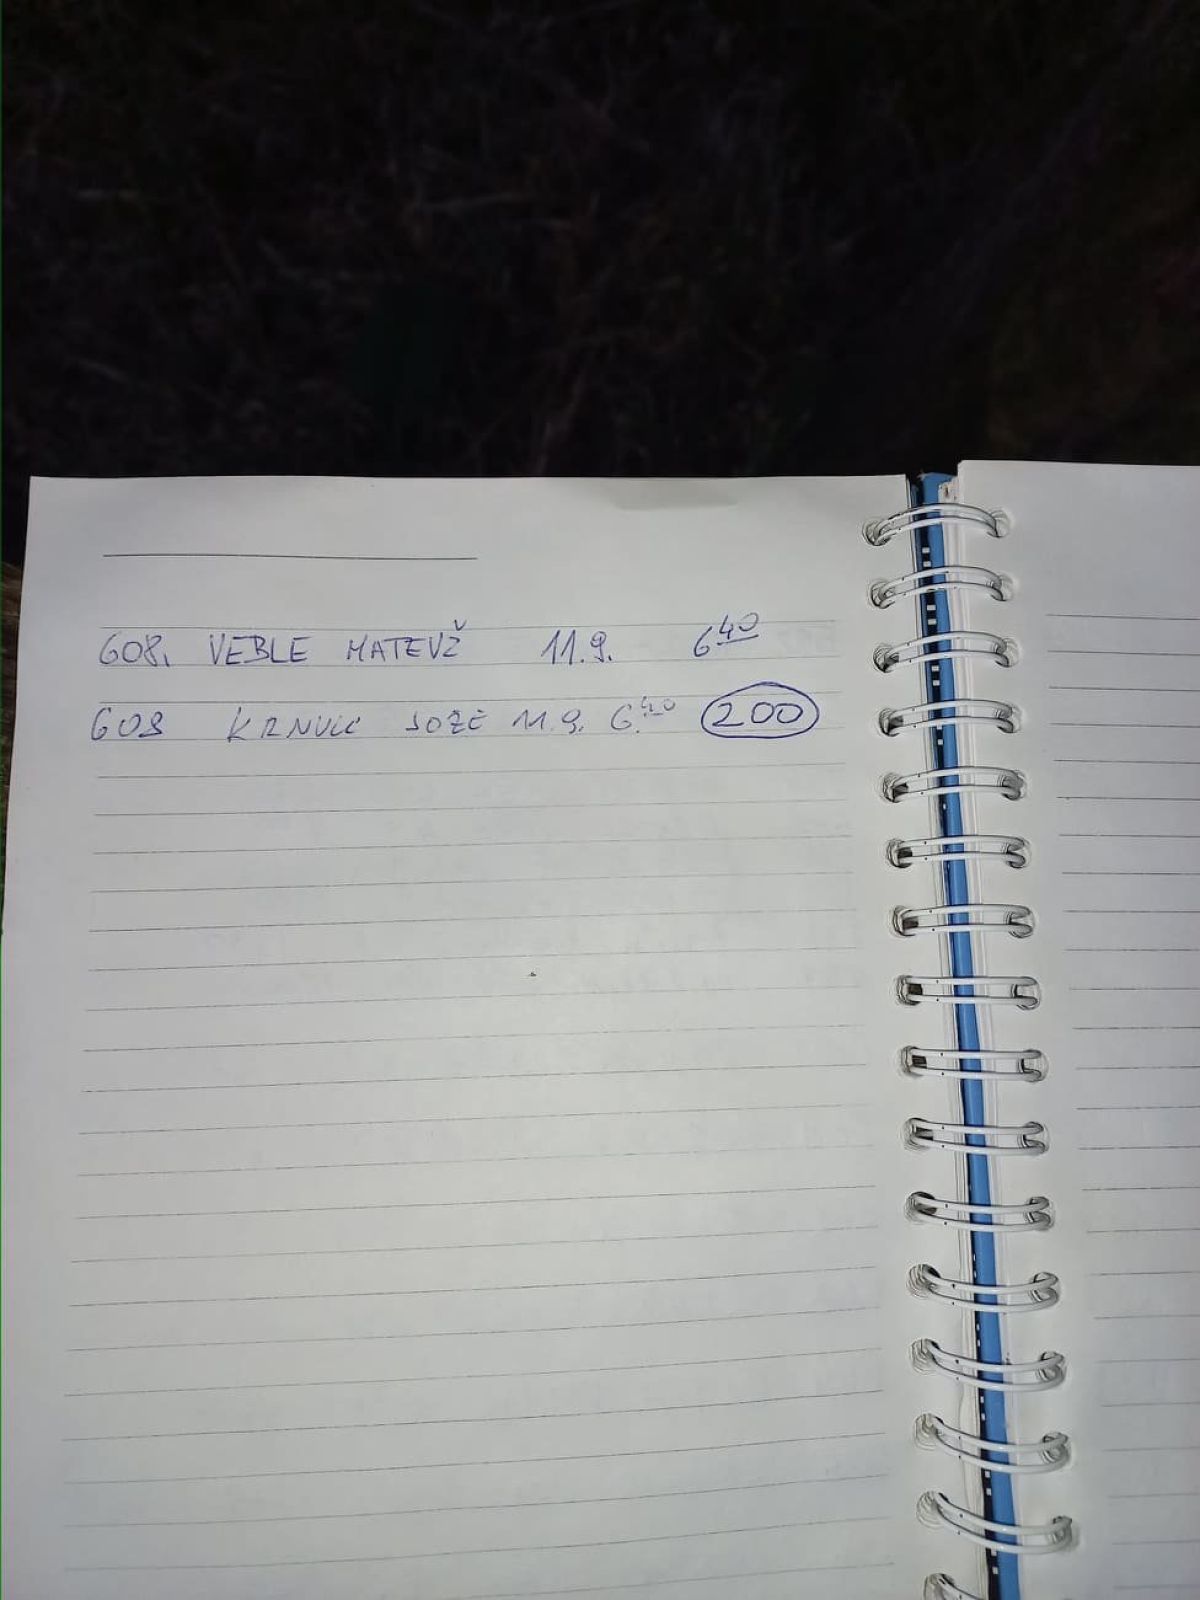 608. VEBLE MATEVŽ 11.9. 6⁴⁰
608 JOŽE 11.9. 6⁴⁰ 200